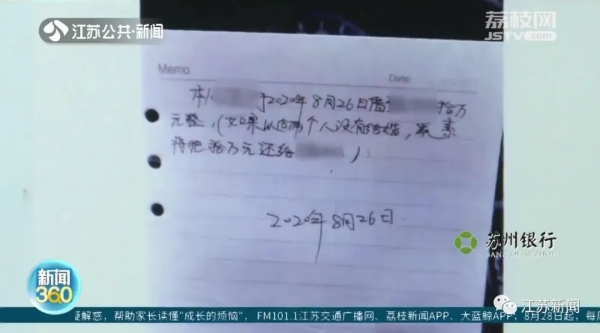 江苏公共·新闻
荔枝网
JSTV.com
Memo
Date:
本人 于2020年8月26日借 拾万
元整,(如果以后两个人没有结婚,
将把拾万元还给 )
2020年8月26日
苏州银行
BANK OF SUZHOU
新闻
360
江苏新闻
疑解惑,帮助家长读懂“成长的烦恼”, FM101.1江苏交通广播网、荔枝新闻APP、大蓝鲸APP、8月28日起,每